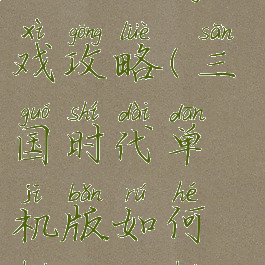 xì gōng lüè sān
戏攻略(三
guó shí dài dān
国时代单
jī bǎn rú hé
机版如何